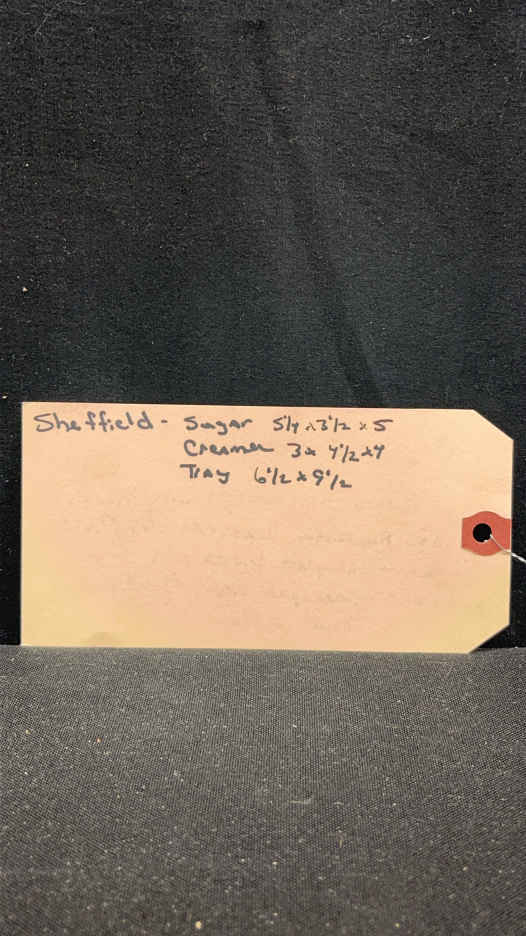 Sheffield - Sugar 5 1/4 x 3 1/2 x 5
Creamer 3 x 4 1/2 x 4
Tray 6 1/2 x 9 1/2